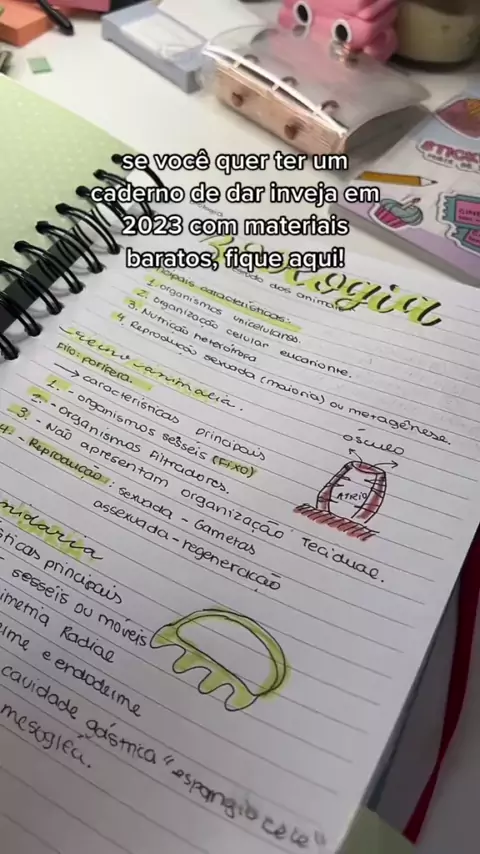 se você quer ter um
caderno de dar inveja em
2023 com materiais
baratos, fique aqui!
STICK
ologia
dos animais
principais características:
1. organismos unicelulares.
2. organização celular eucarionte.
3. Nutrição heterótrofa
4. Reprodução sexuada (maioria) ou metagênese.
reino animalia.
Filo: porífera.
→ características principais
1. - organismos sésseis (Fixo)
2. - organismos filtradores.
3. - Não apresentam organização Tecidual.
4. - Reprodução: sexuada - Gametas
assexuada - regeneração
ósculo
ATRIO
nidaria
sticas principais
- sésseis ou móveis
imetria Radial
e endoderme
cavidade gástrica "espongiocele"
mesogléa.